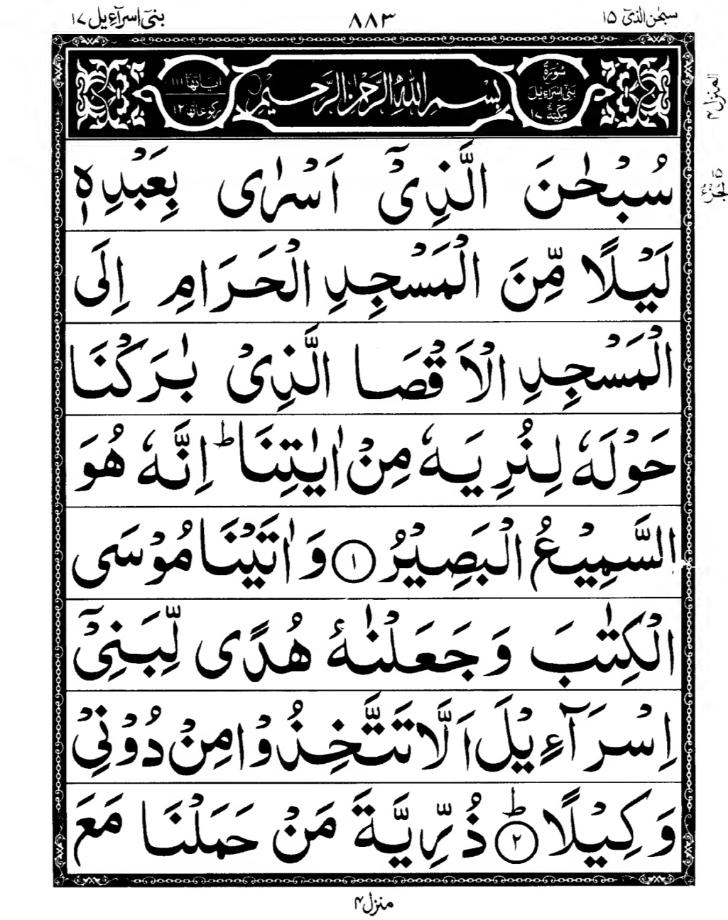 سبحٰن الذیٓ ۱۵
۸۸۳
بنیٓ اسرآءیل ۱۷
سُوْرَةُ بَنِیْٓ اِسْرَآءِیْلَ مَکِّیَّةٌ ۱۷
بِسْمِ اللّٰهِ الرَّحْمٰنِ الرَّحِیْمِ
اٰیاتها ۱۱۱
رکوعاتها ۱۲
المنزل ۴
الجزء ۱۵
سُبْحٰنَ الَّذِیْٓ اَسْرٰی بِعَبْدِهٖ
لَیْلًا مِّنَ الْمَسْجِدِ الْحَرَامِ اِلَی
الْمَسْجِدِ الْاَقْصَا الَّذِیْ بٰرَکْنَا
حَوْلَهٗ لِنُرِیَهٗ مِنْ اٰیٰتِنَا ؕ اِنَّهٗ هُوَ
السَّمِیْعُ الْبَصِیْرُ ۱ وَ اٰتَیْنَا مُوْسَی
الْکِتٰبَ وَ جَعَلْنٰهُ هُدًی لِّبَنِیْٓ
اِسْرَآءِیْلَ اَلَّا تَتَّخِذُوْا مِنْ دُوْنِیْ
وَکِیْلًا ؕ ۲ ذُرِّیَّةَ مَنْ حَمَلْنَا مَعَ
منزل ۴